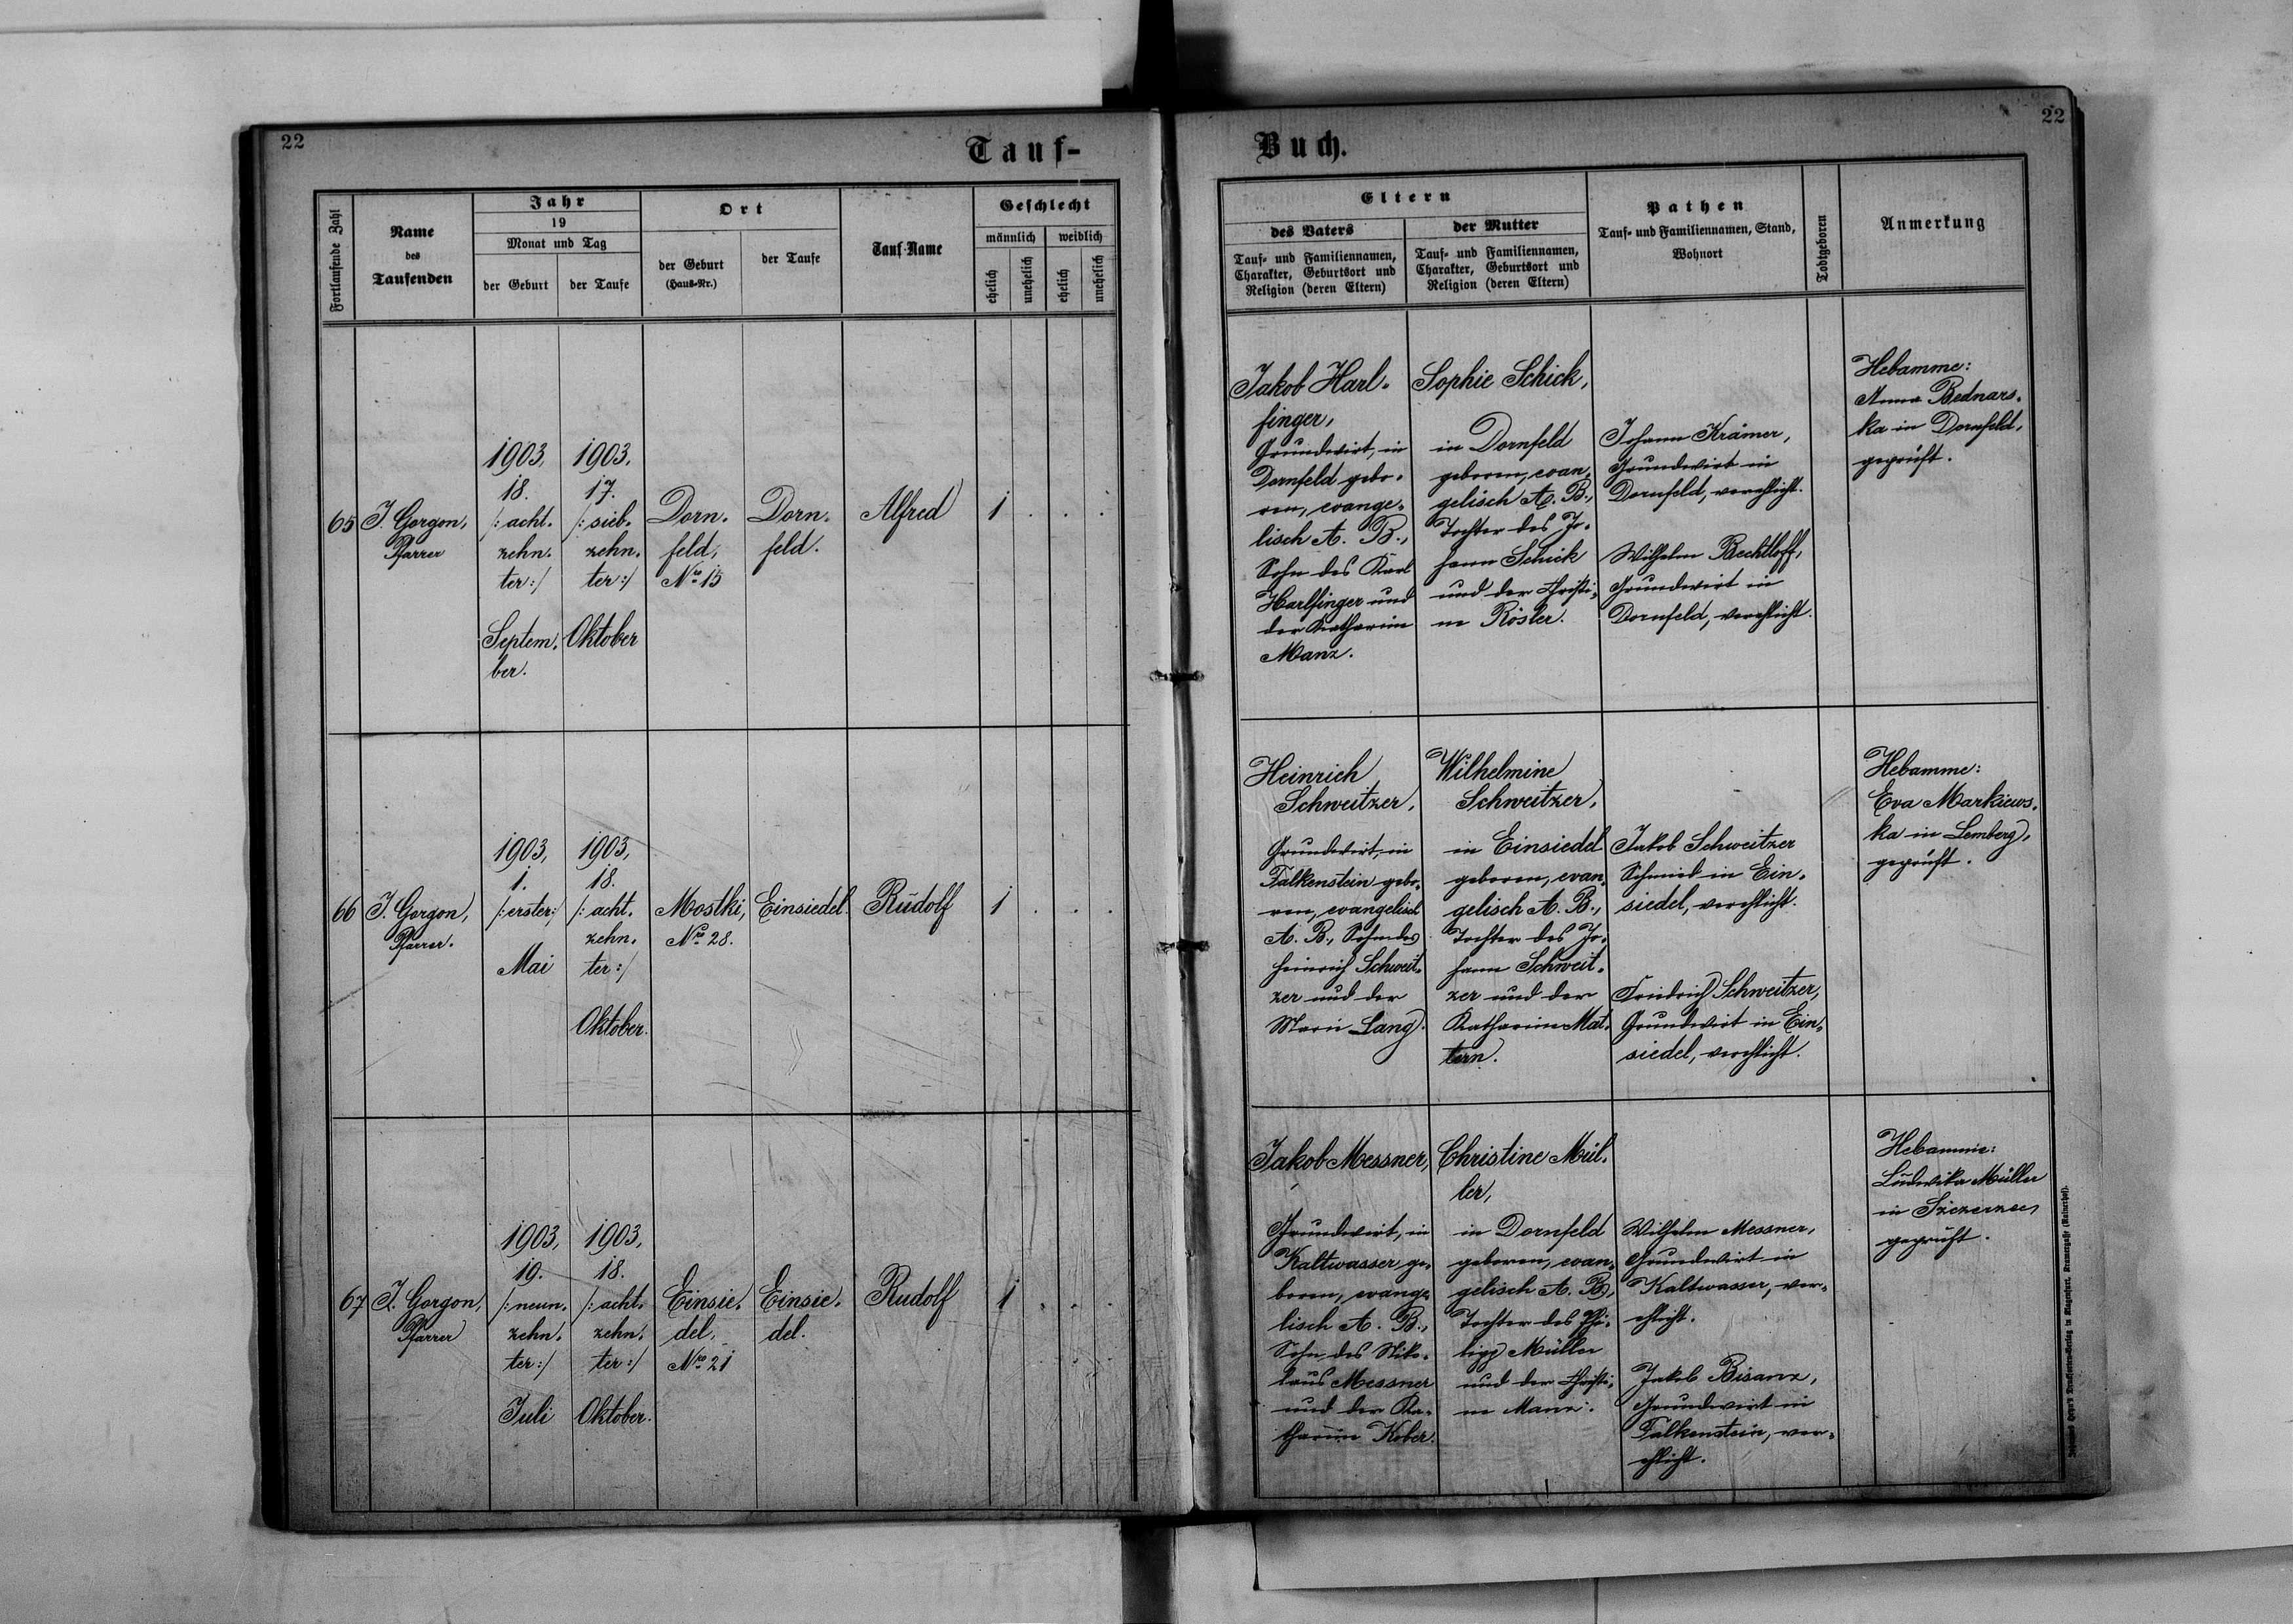 22
Tauf-
Fortlaufende Zahl
Name
des
Taufenden
Jahr
19
Monat und Tag
der Geburt
der Taufe
Ort
der Geburt
(Haus-Nr.)
der Taufe
Tauf-Name
Geschlecht
männlich
weiblich
ehelich
unehelich
ehelich
unehelich
65
J. Gorgon,
Pfarrer
1903,
18.
/: acht-
zehn-
ter :/
Septem-
ber.
1903.
17.
/: sieb-
zehn-
ter :/
Oktober
Dorn-
feld,
No 15
Dorn-
feld.
Alfred
1 . . .
66
J. Gorgon,
Pfarrer.
1903,
1.
/: erster :/
Mai
1903,
18.
/: acht-
zehn-
ter :/
Oktober.
Mostki,
No 28.
Einsiedel.
Rudolf
1 . . .
67
J. Gorgon,
Pfarrer
1903,
19.
/: neun-
zehn-
ter :/
Juli
1903,
18.
/: acht-
zehn-
ter :/
Oktober.
Einsie-
del,
No 21
Einsie-
del.
Rudolf
1 . . .
Buch.
22
Eltern
des Vaters
Tauf- und Familiennamen,
Charakter, Geburtsort und
Religion (deren Eltern)
der Mutter
Tauf- und Familiennamen,
Charakter, Geburtsort und
Religion (deren Eltern)
Pathen
Tauf- und Familiennamen, Stand,
Wohnort
Todtgeboren
Anmerkung
Jakob Harl-
finger,
Grundwirt, in
Dornfeld gebo-
ren, evange-
lisch A. B.,
Sohn des Karl
Harlfinger und
der Katharina
Manz.
Sophie Schick,
in Dornfeld
geboren, evan-
gelisch A. B.,
Tochter des Jo-
hann Schick
und der Christi-
ne Rösler.
Johann Krämer,
Grundwirt in
Dornfeld, verehlicht.
Wilhelm Bechtloff,
Grundwirt in
Dornfeld, verehlicht.
Hebamme:
Anna Bednars-
ka in Dornfeld,
geprüft.
Heinrich
Schweitzer,
Grundwirt, in
Falkenstein gebo-
ren, evangelisch
A. B., Sohn des
Heinrich Schweit-
zer und der
Marie Lang.
Wilhelmine
Schweitzer,
in Einsiedel
geboren, evan-
gelisch A. B.,
Tochter des Jo-
hann Schweit-
zer und der
Katharine Mat-
tern.
Jakob Schweitzer
Schmied in Ein-
siedel, verehlicht.
Friedrich Schweitzer,
Grundwirt in Ein-
siedel, verehlicht.
Hebamme:
Eva Markiews-
ka in Lemberg,
geprüft.
Jakob Messner,
Grundwirt, in
Kaltwasser ge-
boren, evange-
lisch A. B.,
Sohn des Niko-
laus Messner
und der Ka-
tharine Kober.
Christine Mül-
ler,
in Dornfeld
geboren, evan-
gelisch A. B.,
Tochter des Phi-
lipp Müller
und der Christi-
ne Manz.
Wilhelm Messner,
Grundwirt in
Kaltwasser, ver-
ehlicht.
Jakob Bisanz,
Grundwirt in
Falkenstein, ver-
ehlicht.
Hebamme:
Ludwika Müller
in Szczerzec,
geprüft.